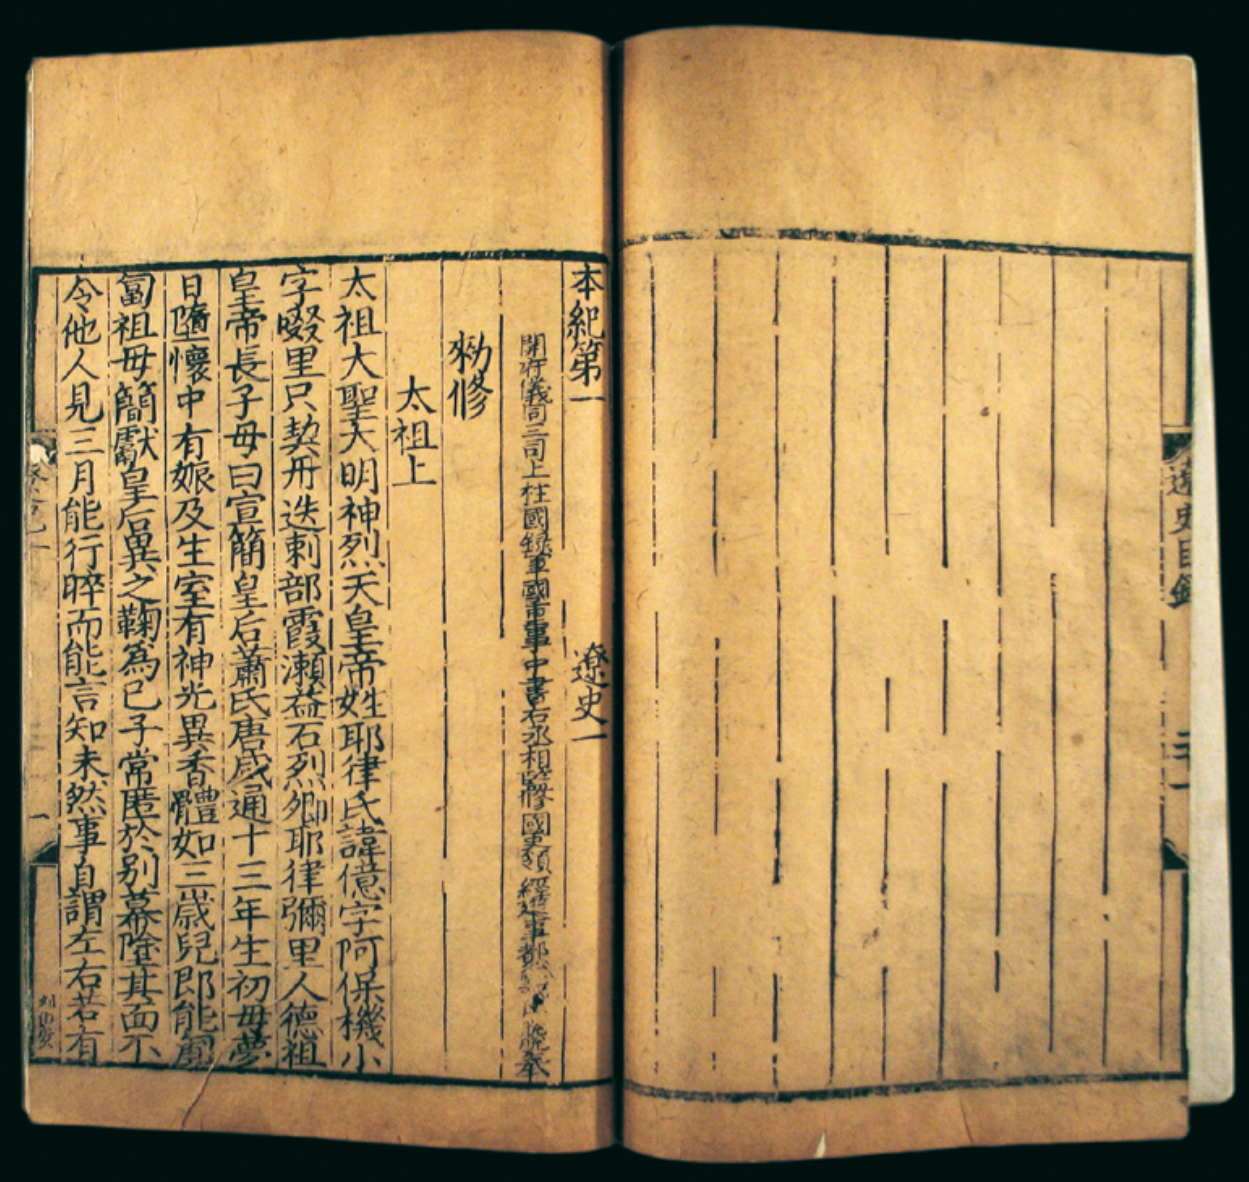 遼史目錄
本紀第一 遼史一
開府儀同三司上柱國錄軍國重事中書右丞相監修國史領經筵事都總裁臣脫脫奉
勑修
太祖上
太祖大聖大明神烈天皇帝姓耶律氏諱億字阿保機小
字啜里只契丹迭剌部霞瀨益石烈鄉耶律彌里人德祖
皇帝長子母曰宣簡皇后蕭氏唐咸通十三年生初母夢
日墮懷中有娠及生室有神光異香體如三歲兒即能匍
匐祖母簡獻皇后異之鞠為已子常匿於別幕塗其面不
令他人見三月能行晬而能言知未然事自謂左右若有